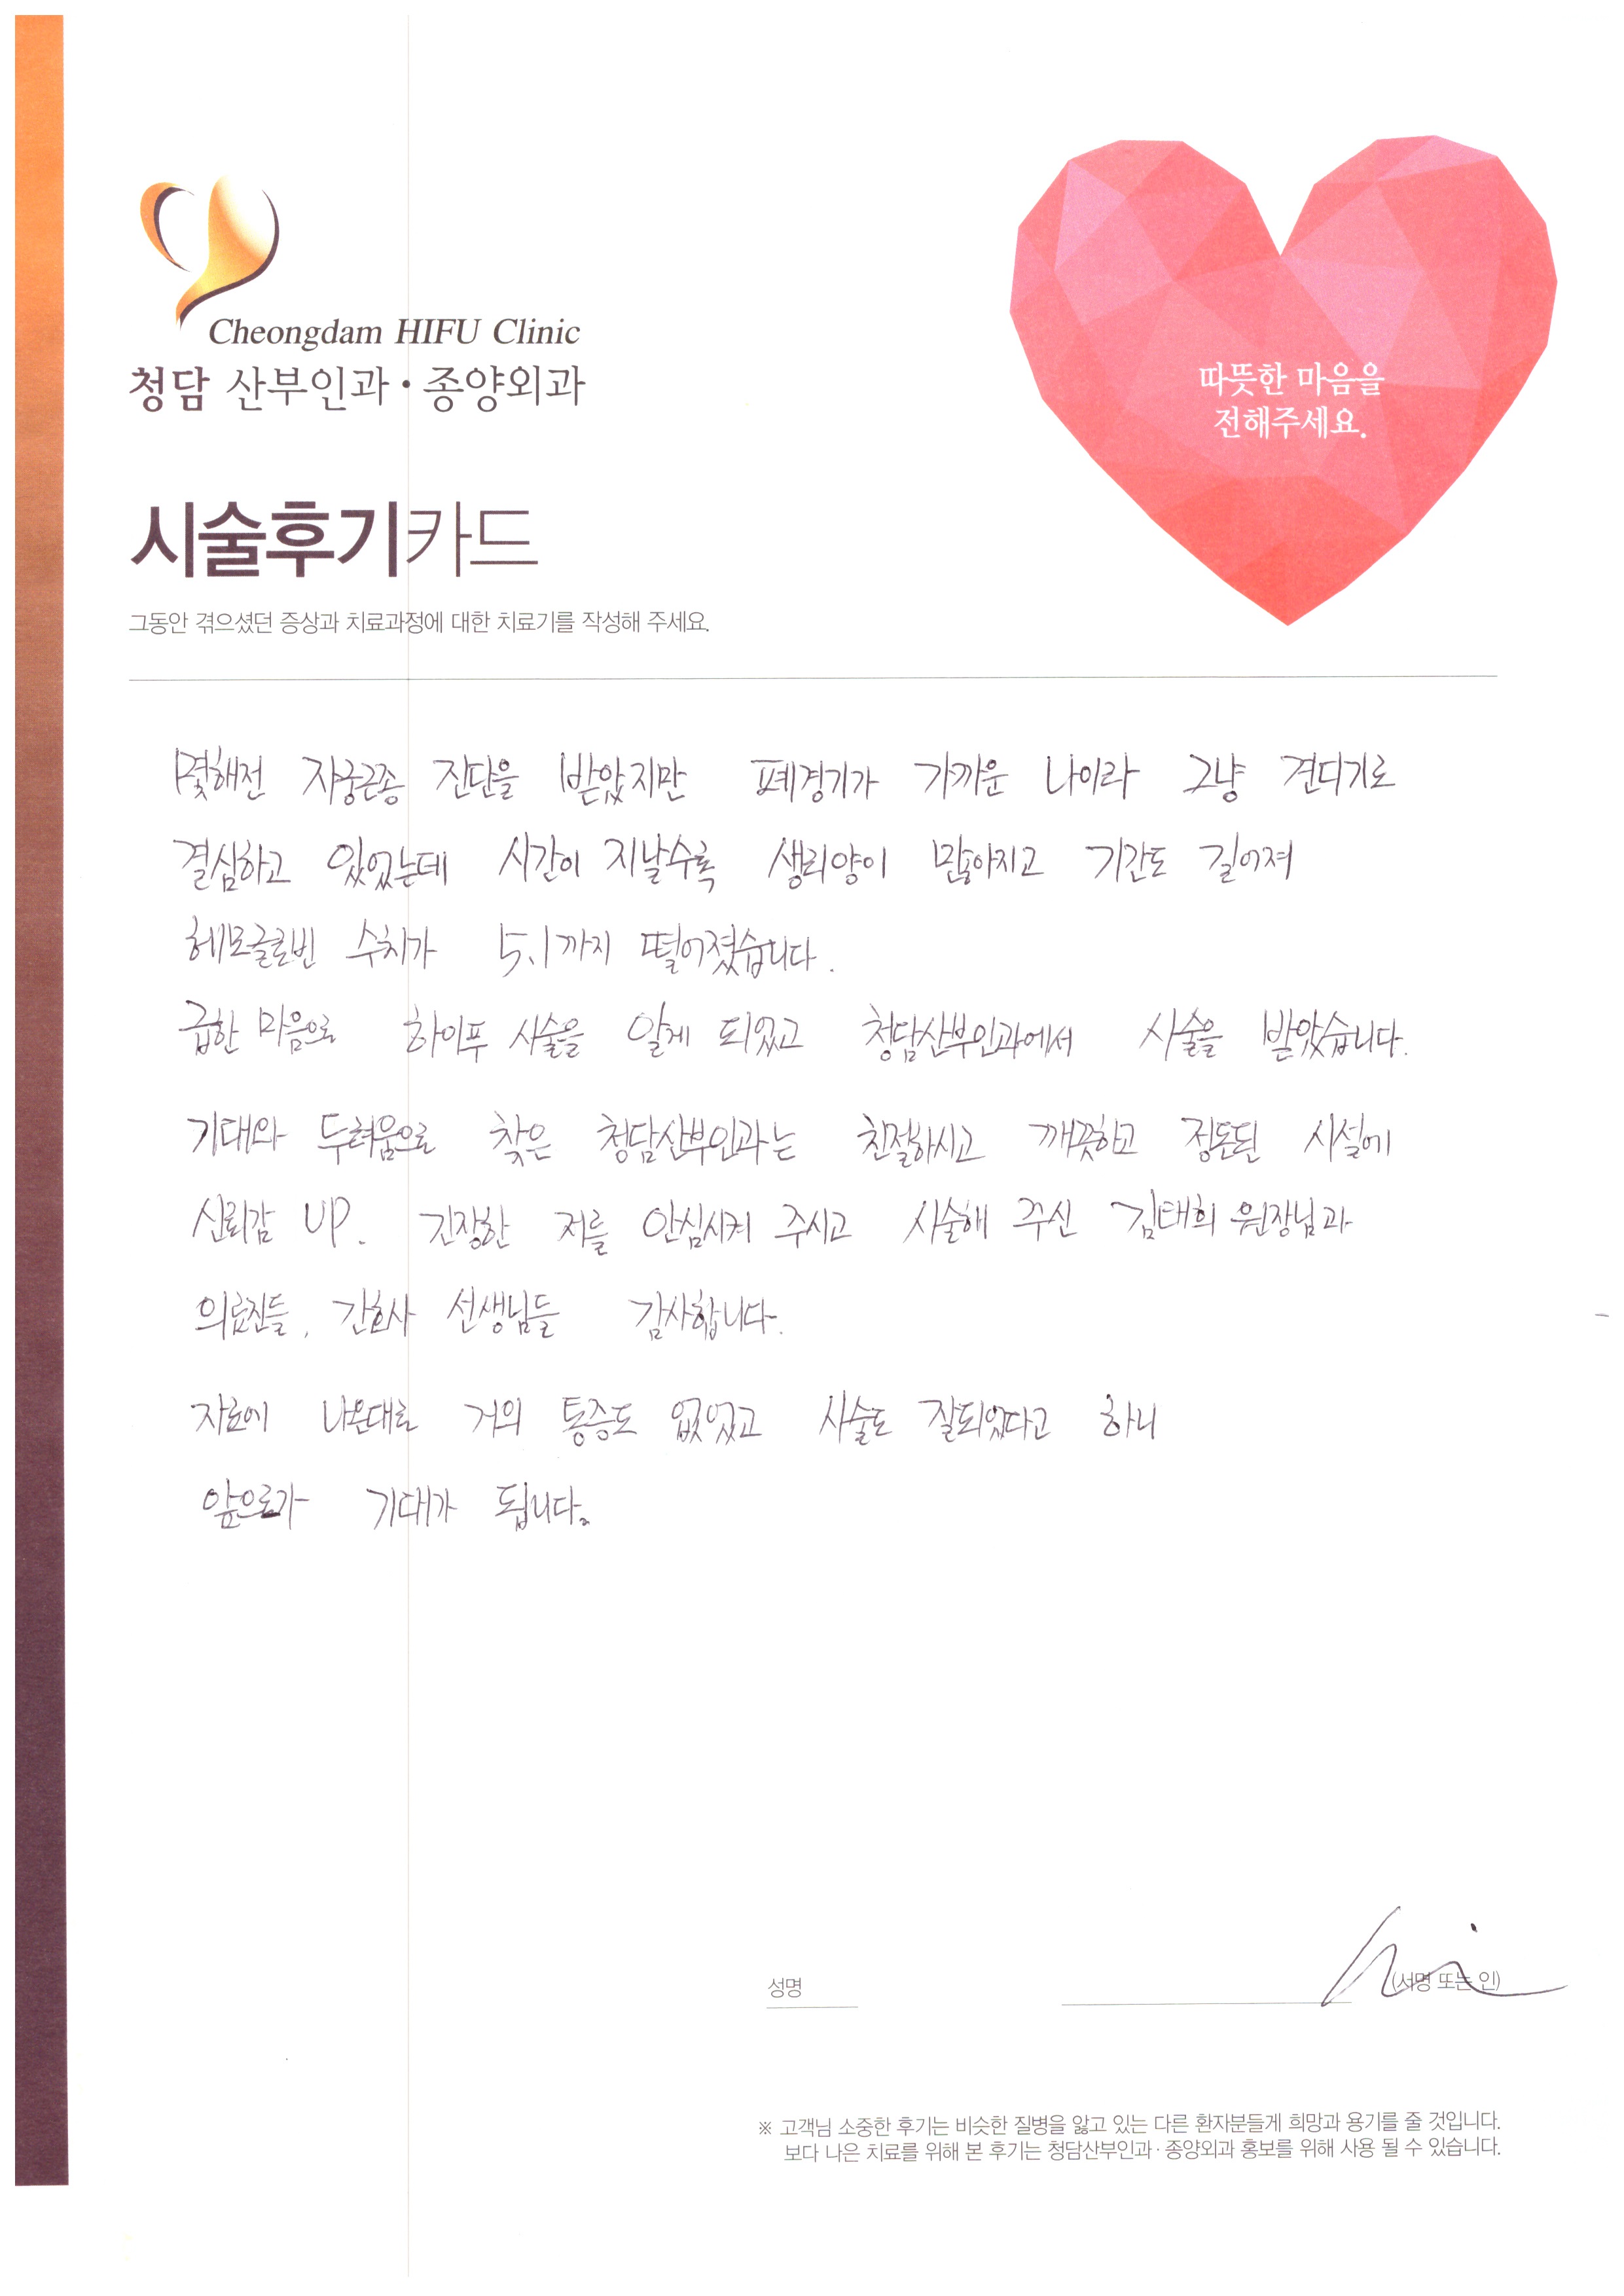 Cheongdam HIFU Clinic
청담 산부인과·종양외과
따뜻한 마음을
전해주세요.
시술후기카드
그동안 겪으셨던 증상과 치료과정에 대한 치료기를 작성해 주세요.
몇해전 자궁근종 진단을 받았지만 폐경기가 가까운 나이라 그냥 견디기로
결심하고 있었는데 시간이 지날수록 생리양이 많아지고 기간도 길어져
헤모글로빈 수치가 5.1까지 떨어졌습니다.
급한 마음으로 하이푸 시술을 알게 되었고 청담산부인과에서 시술을 받았습니다.
기대와 두려움으로 찾은 청담산부인과는 친절하시고 깨끗하고 정돈된 시설에
신뢰감 UP. 긴장한 저를 안심시켜 주시고 시술해 주신 김태희 원장님과
의료진들, 간호사 선생님들 감사합니다.
자료에 나온대로 거의 통증도 없었고 시술도 잘되었다고 하니
앞으로가 기대가 됩니다.
성명 (서명 또는 인)
※ 고객님 소중한 후기는 비슷한 질병을 앓고 있는 다른 환자분들게 희망과 용기를 줄 것입니다.
보다 나은 치료를 위해 본 후기는 청담산부인과·종양외과 홍보를 위해 사용 될 수 있습니다.